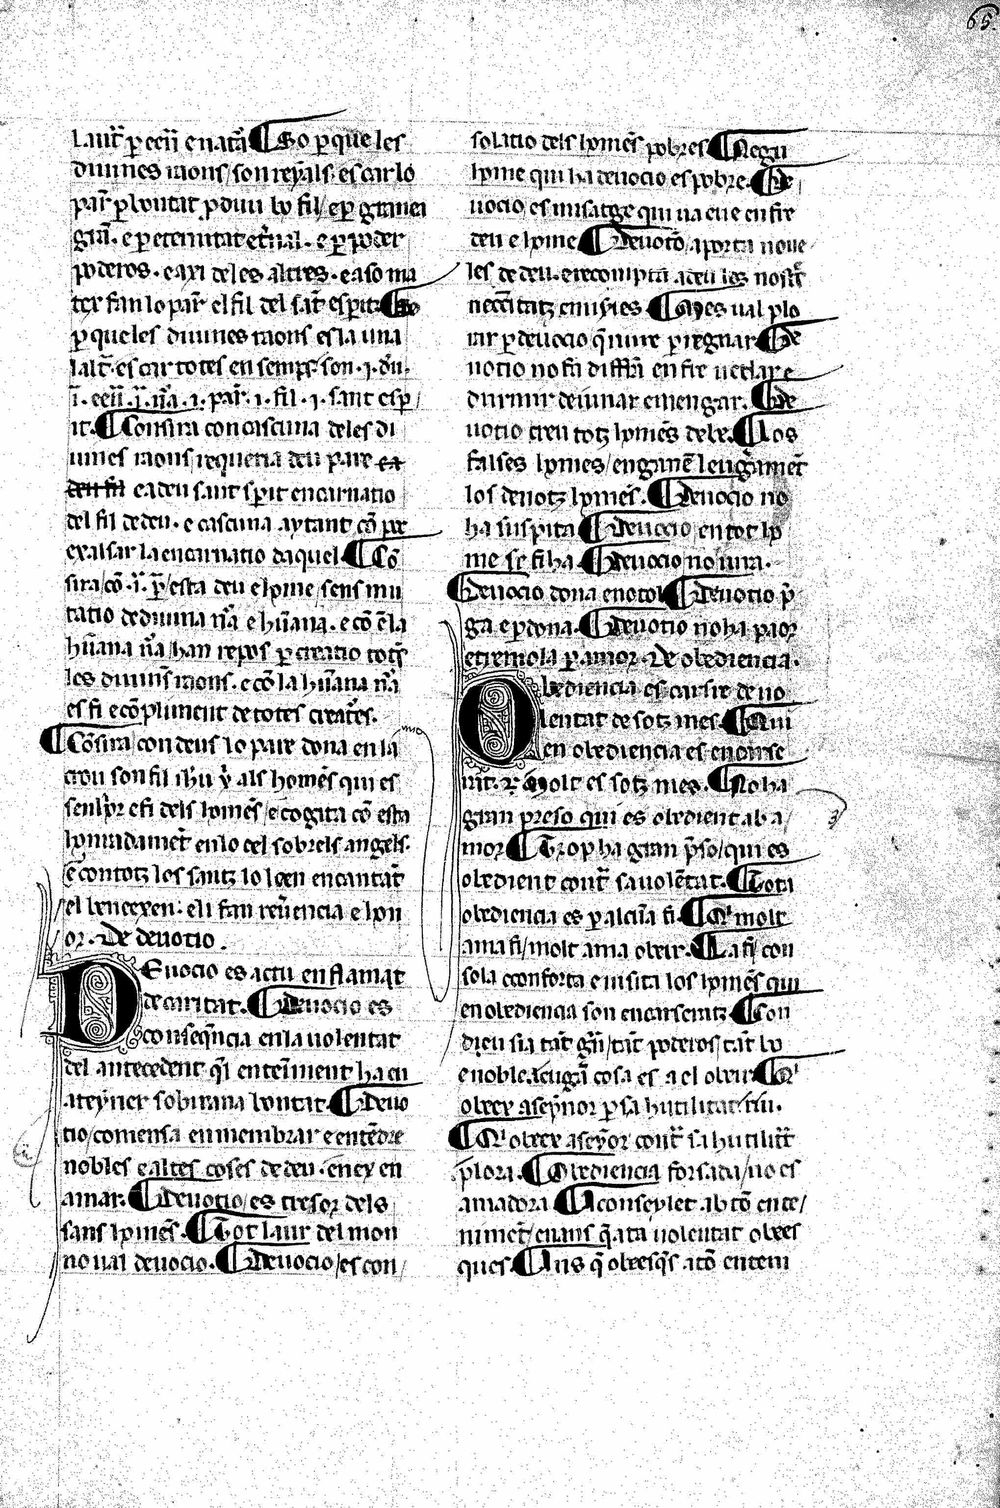 65
laut̃ p ecẽn e natã ¶ So per que les
diuines raons / son reyals. es car lo
par̃ p bontat produu bo fil / e p granea
grã. e p eternitat et̃nal. e p poder
poderos. e axi de les altres. e aso ma
tex fan lo par̃ el fil del sat̃ esperit. ¶ So
per que les diuines raons es la una
laltr̃. es car totes en semps son .i. diu̾.
.i. ecẽn .i. nã. .i. par̃. .i. fil. .i. sant esp
it. ¶ Consira con cascuna de les di
uines raons / requeria deu pare
e a deu sant sperit encarnatio
del fil de deu. e cascuna aytant cõ per
exalsar la encarnatio daquel ¶ Cõ
sira / cõ .i. p̃ / esta deu e home / sens mu
tatio de diuina nã e hũana. e cõ ẽ la
hũana nã / han repos p creatio totes
les diuines raons. e cõ la hũana nã
es fi e cõpliment de totes creat̃es.
¶ Cõsira con deus lo pare dona en la
crou son fil ihũ x̃ als homẽs qui es
senher e fi dels homẽs / e cogita cõ esta
honradamẽt en lo cel sobrels angels.
e con totz los santz lo loen en cantãt
el beneexen. eli fan reũencia e hon
or. De deuotio.
Deuocio es actu en flamat
de caritat. ¶ Deuocio es
conseq̃ncia en la uolentat
del antecedent q̃l enteniment ha en
ateyner sobirana bontat. ¶ Deuo
tio / comensa en membrar e entẽdre
nobles e altes coses de deu. en ex en
amar. ¶ Deuotio / es tresor dels
sans homẽs. ¶ Tot laur del mon
no ual deuocio. ¶ Deuocio / es con /
solatio dels homẽs pobres ¶ Negu
home qui ha deuocio es pobre. ¶ De
uocio es misatge qui ua e ue enfre
deu e home ¶ Deuotõ / aporta noue
les de deu. e recompta a deu les nostr̃
necẽitatz e misies. ¶ Mes ual plo
rar p deuocio q̃ riure p regnar ¶ De
uotio no fa diffr̃a enfre uetlar e
durmir deiunar e mengar. ¶ De
uotio creu totz homẽs de be. ¶ Los
falses homes / enganẽ leug̃amẽt
los deuotz homẽs. ¶ Deuocio no
ha suspita ¶ Deuocio / en tot ho
me se fiha. ¶ Deuocio no iura.
¶ Deuocio dona e no tol ¶ Deuotio p̃
ga e p dona. ¶ Deuotio no ha paor
e tremola p amor. De obediencia.
Obediencia es cursie de uo
lentat de sotz mes. ¶ Qui
en obediencia es encarse
rat. molt es sotz mes. ¶ No ha
gran preso qui es obedient ab a /
mor ¶ Trop ha gran p̃so / qui es
obedient cont̃ sa uolẽtat. ¶ Tota
obediencia es p alcũa fi. ¶ Qui molt
ama fi / molt ama obeir. ¶ La fi / con
sola e conforta e uisita los homẽs qui
en obediencia son encarseratz. ¶ Con
dieu sia tãt grã / tãt poderos / tãt bo
e noble. leugã cosa es a el obeir ¶ Qui
obeex a seỹnor p sa hutilitat. riu.
¶ Qui obeex a seỹor cont̃ sa hutilitãt
plora. ¶ Obediencia forsada / no es
amadora ¶ Aconseylet ab tõ ente /
nimẽt / enans q̃ a ta uolentat obees
ques. ¶ Ans q̃ obeesq̃s a tõ enteni